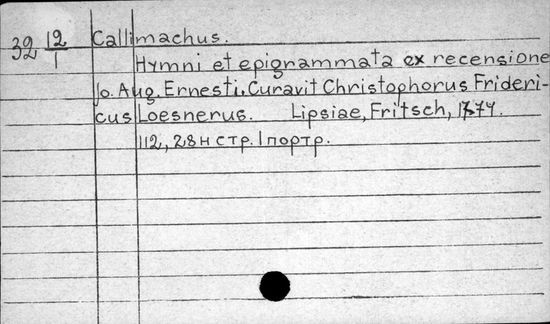 32 12/1 Callimachus.
Hymni et epigrammata ex recensione
Jo. Aug. Ernesti. Curavit Christophorus Frideri-
cus Loesnerus. Lipsiae, Fritsch, 1774.
112, 28 н стр. 1 портр.